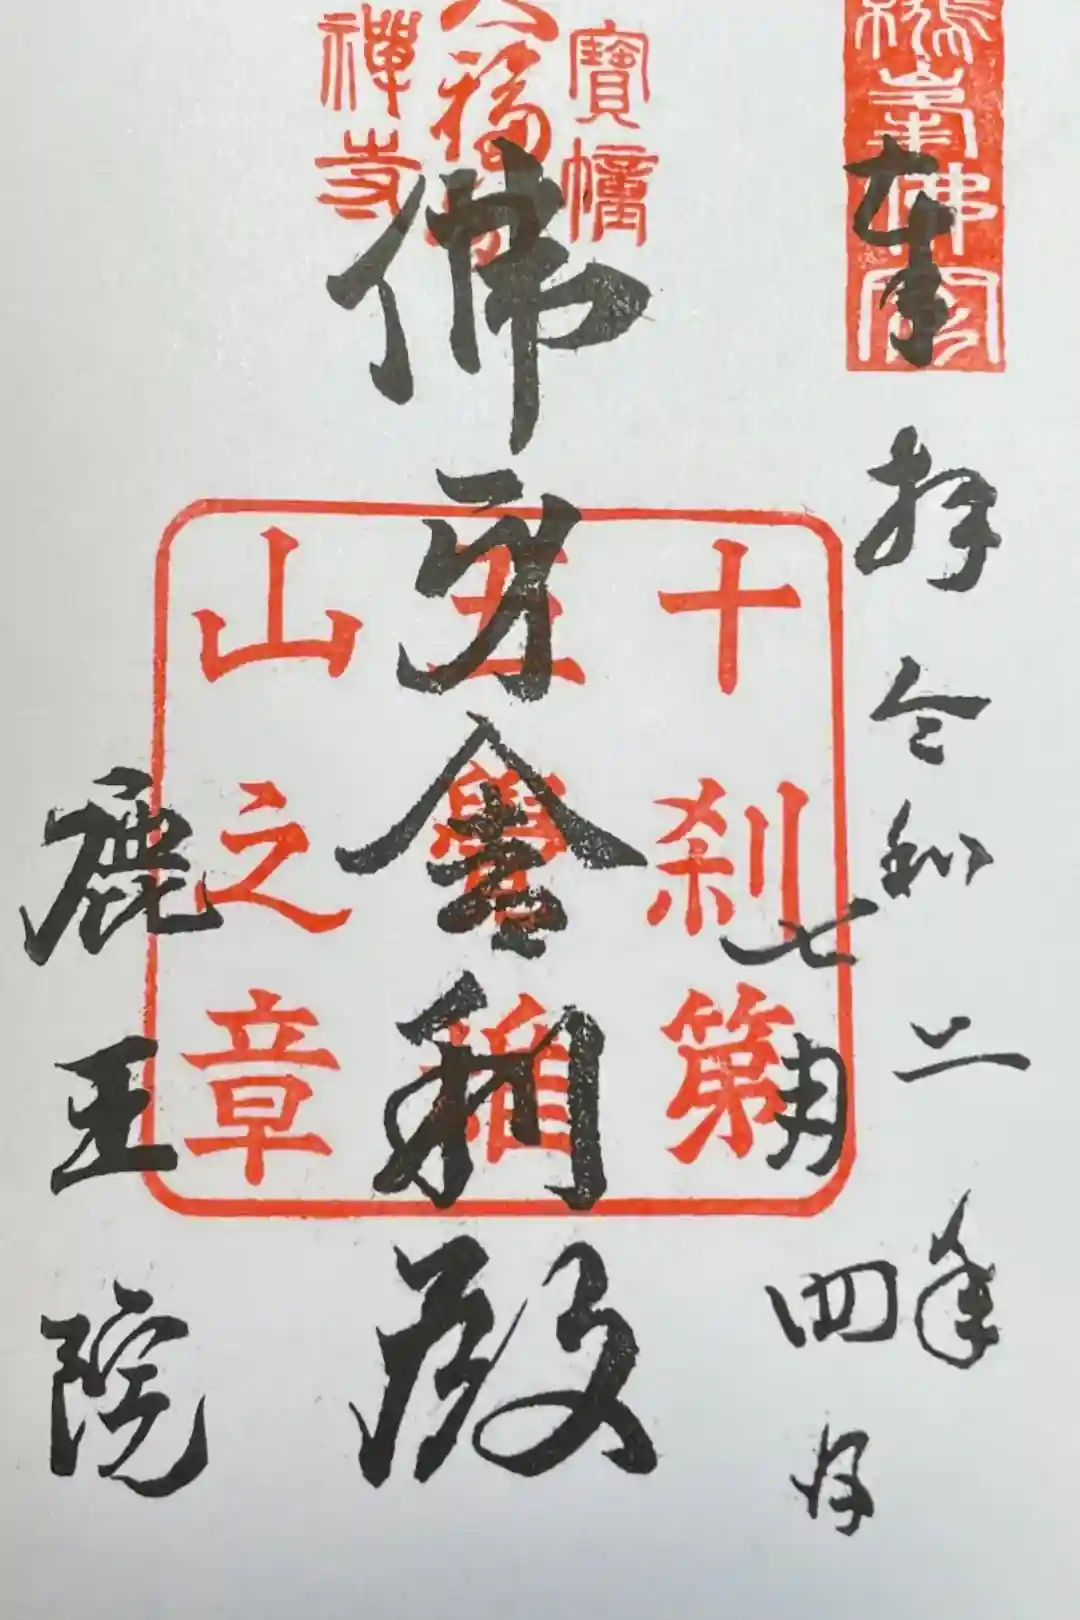 峯佛
奉拝 令和二年
七月四日
寶幢
大福田
禪寺
佛牙舎利殿
十刹第
五覺雄
山之章
鹿王院